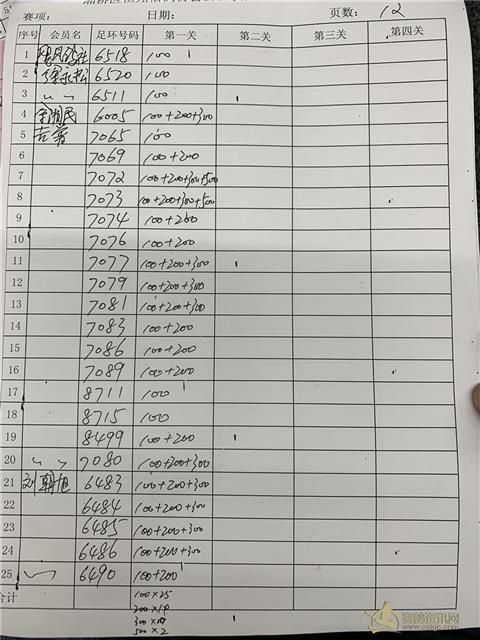 赛项: 日期: 页数: 12
序号 会员名 足环号码 第一关 第二关 第三关 第四关
1 6518 100
2 徐永松 6520 100
3 〃 〃 6511 100
4 6005 100+200+300
5 7065 100
6 7069 100+200
7 7072 100+200+300+500
8 7073 100+200+300+500
9 7074 100+200
10 7076 100+200
11 7077 100+200+300
12 7079 100+200+300
13 7081 100+200+300
14 7083 100+200
15 7086 100+200
16 7089 100+200
17 8711 100
18 8715 100
19 8499 100+200
20 〃 〃 7080 100+200+300
21 刘朝旭 6483 100+200+300
22 6484 100+200+300
23 6485 100+200+300
24 6486 100+200+300
25 6490 100+200
合计 100×25
200×19
300×
500×2
赛鸽资讯网
www.saige.com